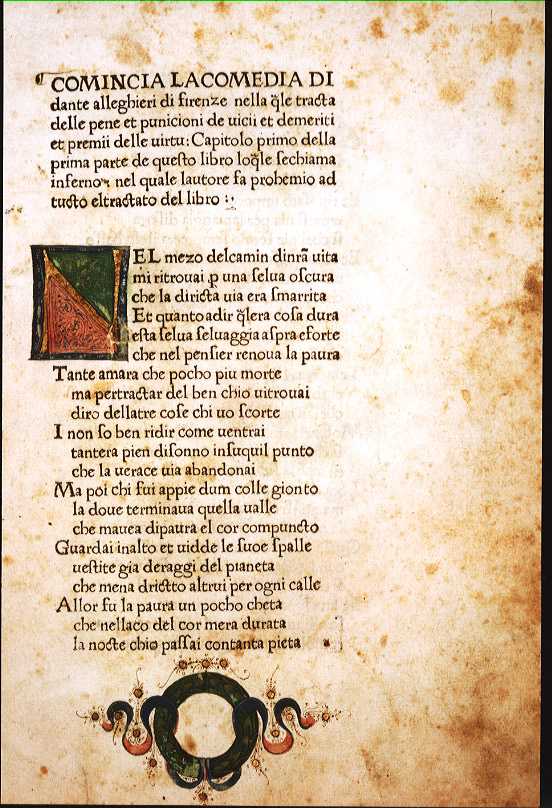 ¶ COMINCIA LACOMEDIA DI
dante alleghieri di firenze nella q̃le tracta
delle pene et punicioni de uicii et demeriti
et premii delle uirtu: Capitolo primo della
prima parte de questo libro loq̃le sechiama
inferno: nel quale lautore fa prohemio ad
tucto eltractato del libro :,
NEL mezo delcamin dinrã uita
mi ritrouai ꝑ una ſelua oſcura
che la diricta uia era ſmarrita
Et quanto adir q̃lera coſa dura
eſta ſelua ſeluaggia aſpra eforte
che nel penſier renoua la paura
Tante amara che pocho piu morte
ma pertractar del ben chio uitrouai
diro dellatre coſe chi uo ſcorte
I non ſo ben ridir come uentrai
tantera pien diſonno inſuquil punto
che la uerace uia abandonai
Ma poi chi fui appie dum colle gionto
la doue terminaua quella ualle
che mauea dipaura el cor compuncto
Guardai inalto et uidde le ſuoe ſpalle
ueſtite gia deraggi del pianeta
che mena drictto altrui per ogni calle
Allor fu la paura un pocho cheta
che nellaco del cor mera durata
la nocte chio paſſai contanta pieta